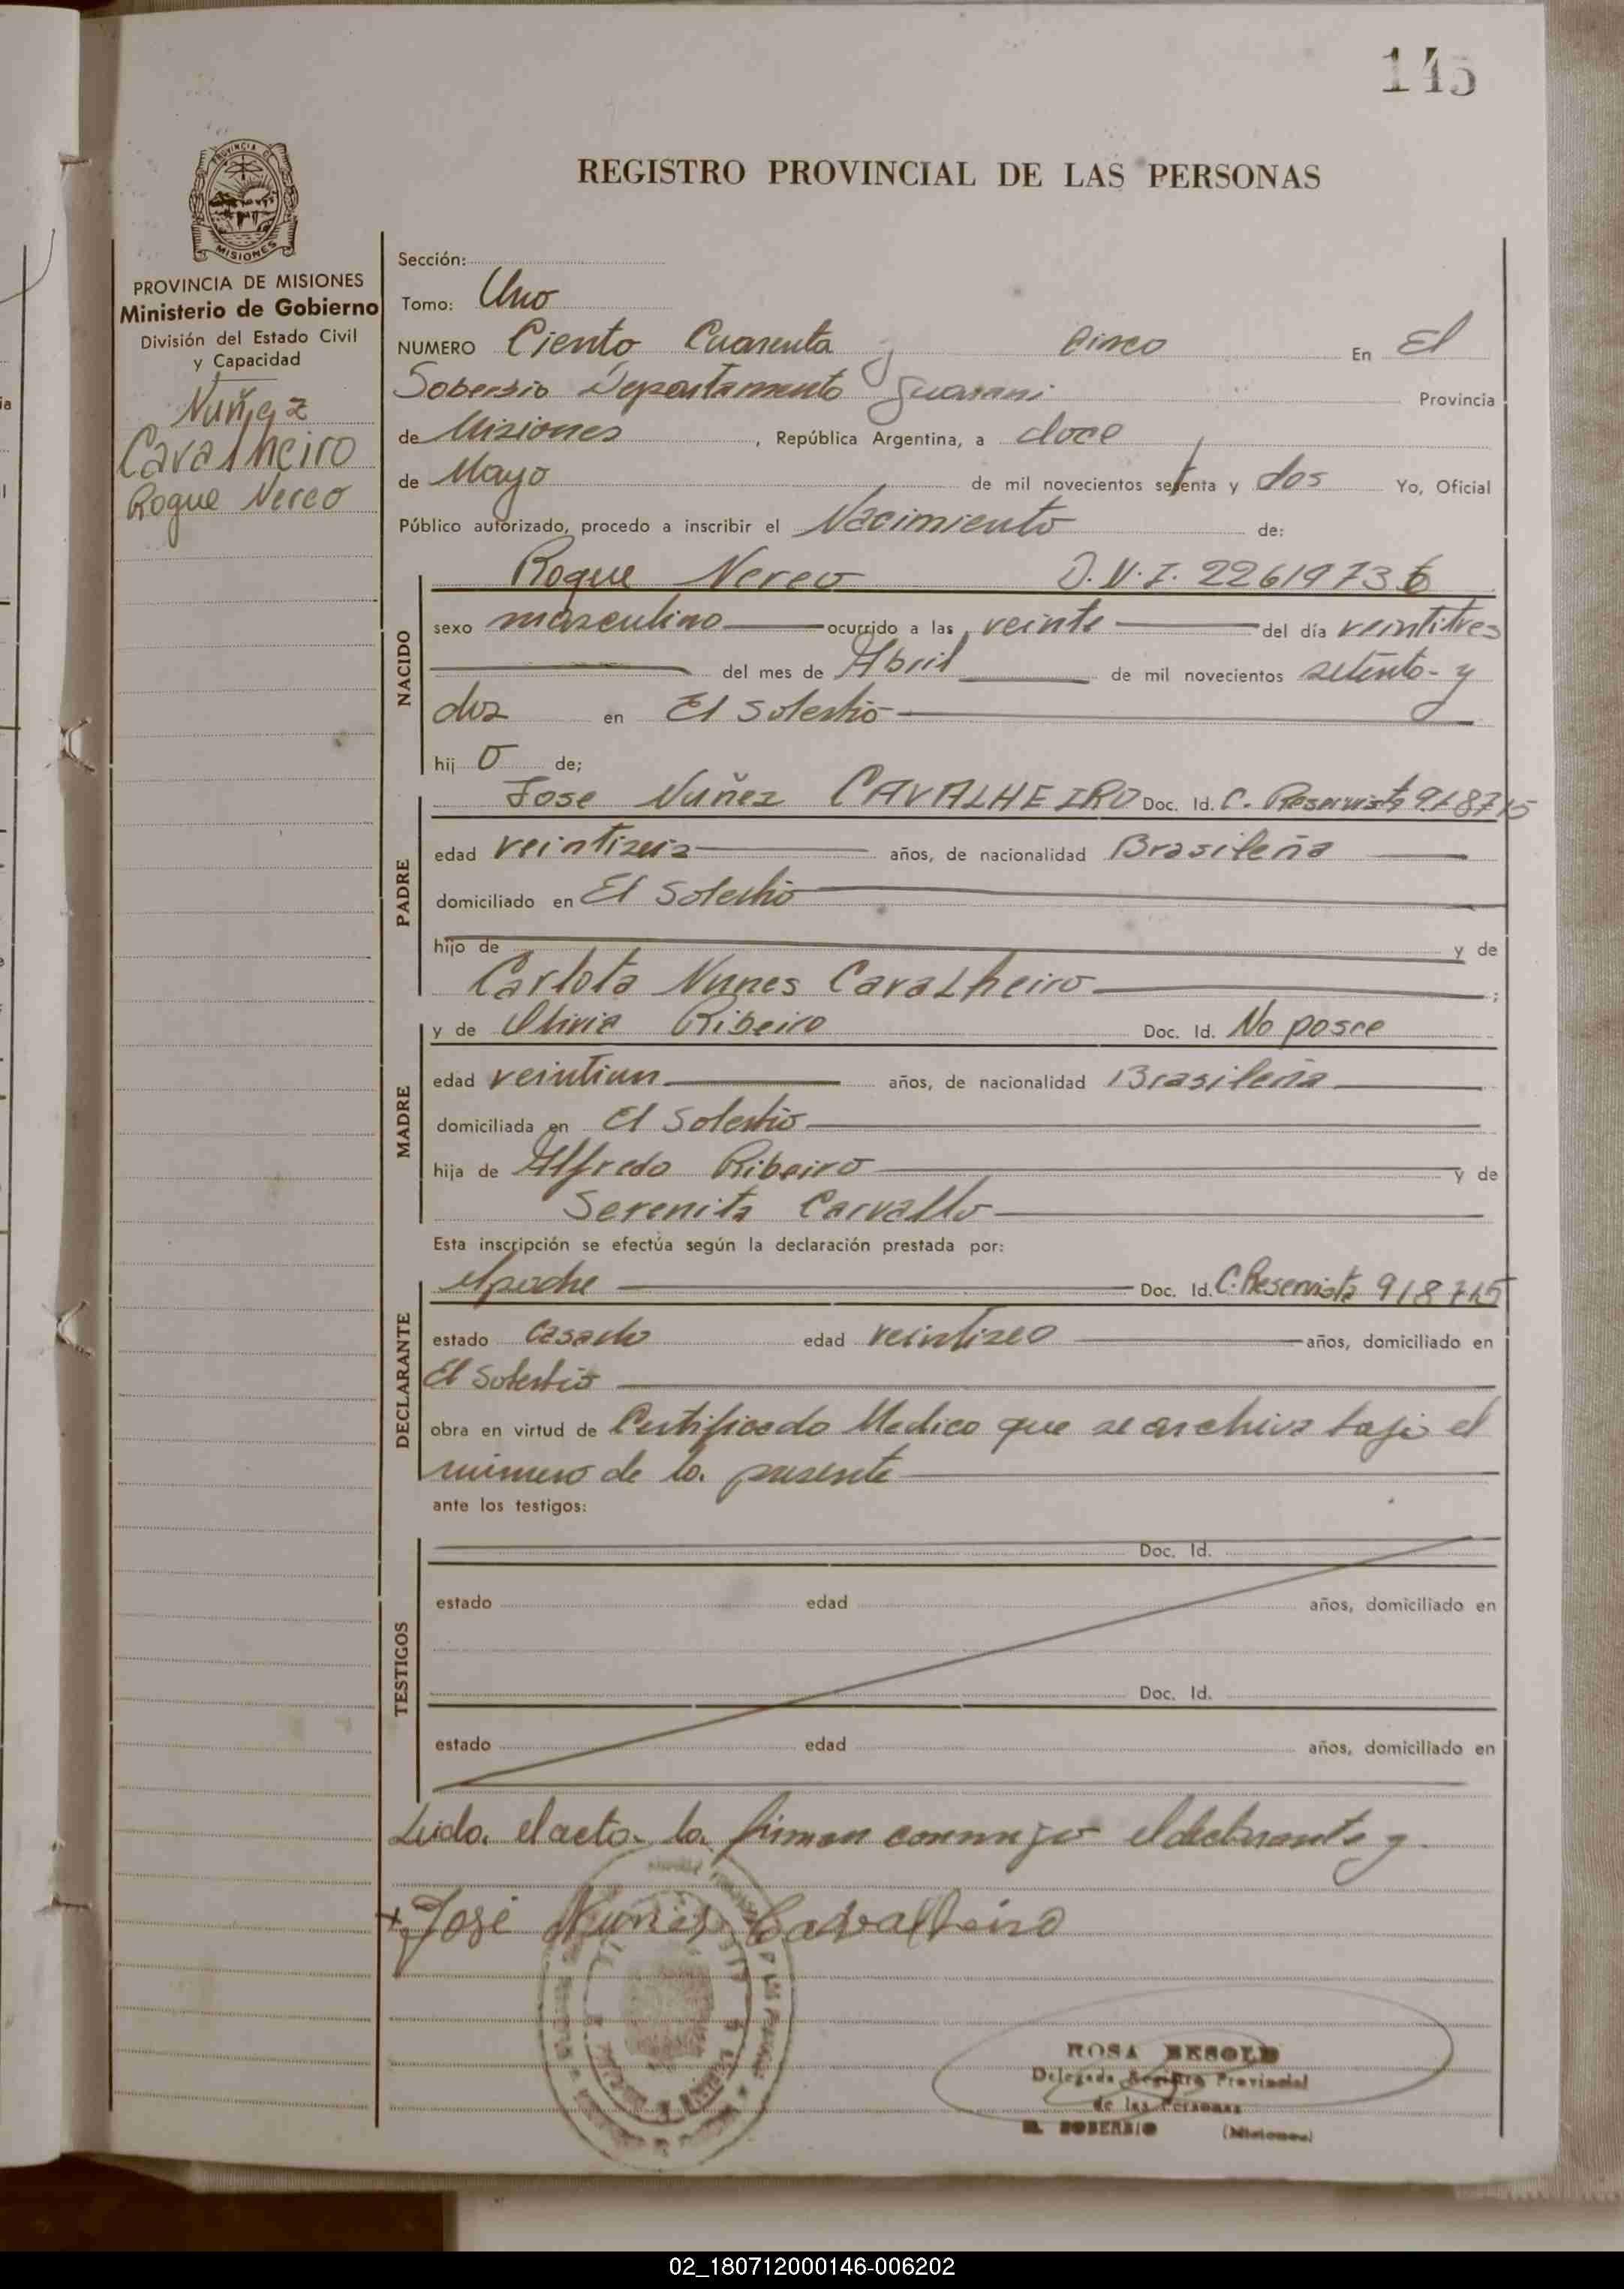 145
PROVINCIA DE
MISIONES
PROVINCIA DE MISIONES
Ministerio de Gobierno
División del Estado Civil
y Capacidad
Nuñez
Cavalheiro
Roque Nereo
REGISTRO PROVINCIAL DE LAS PERSONAS
Sección:
Tomo: Uno
NUMERO Ciento Cuarenta y cinco En El
Soberbio Departamento Guarani Provincia
de Misiones, República Argentina, a doce
de Mayo de mil novecientos setenta y dos Yo, Oficial
Público autorizado, procedo a inscribir el Nacimiento de:
NACIDO
Roque Nereo D.N.I. 22619736
sexo masculino ocurrido a las veinte del día veintitres
del mes de Abril de mil novecientos setenta y
dos en El Soberbio
hij o de;
PADRE
Jose Nuñez CAVALHEIRO Doc. Id. C. Reservista 918715
edad veintiseis años, de nacionalidad Brasileña
domiciliado en El Soberbio
hijo de y de
Carlota Nunes Cavalheiro ;
MADRE
y de Olivia Ribeiro Doc. Id. No posee
edad veintiun años, de nacionalidad Brasileña
domiciliada en El Soberbio
hija de Alfredo Ribeiro y de
Serenita Carvallo
Esta inscripción se efectúa según la declaración prestada por:
DECLARANTE
el padre Doc. Id. C. Reservista 918715
estado casado edad años, domiciliado en
El Soberbio
obra en virtud de Certificado Medico que se archiva bajo el
número de la presente
ante los testigos:
TESTIGOS
Doc. Id.
estado edad años, domiciliado en
Doc. Id.
estado edad años, domiciliado en
Leida el acta la firman conmigo el declarante y
José Nunes Cavalheiro
ROSA BESOLD
Delegada Registro Provincial
de las Personas
EL SOBERBIO (Misiones)
02_180712000146-006202